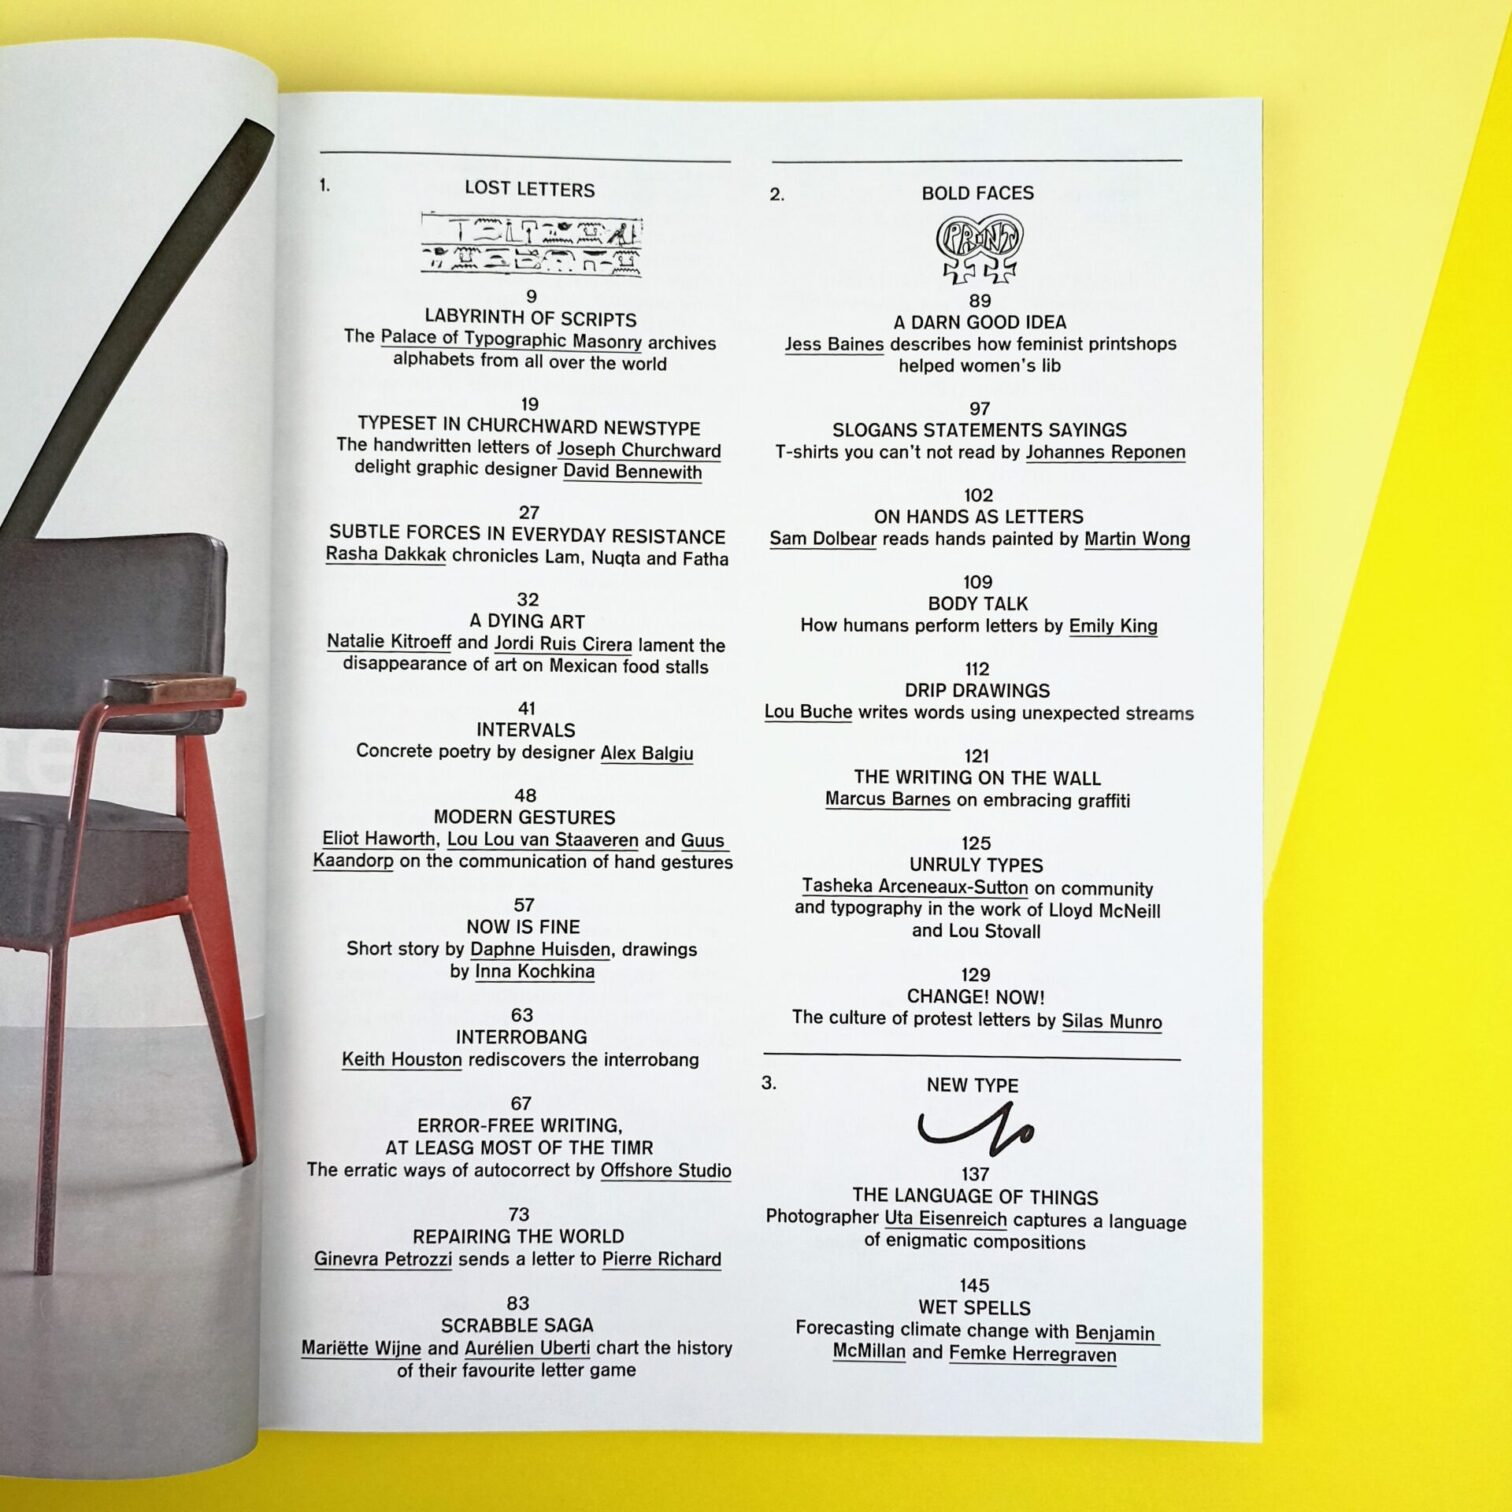 1.
LOST LETTERS
9
LABYRINTH OF SCRIPTS
The Palace of Typographic Masonry archives
alphabets from all over the world
19
TYPESET IN CHURCHWARD NEWSTYPE
The handwritten letters of Joseph Churchward
delight graphic designer David Bennewith
27
SUBTLE FORCES IN EVERYDAY RESISTANCE
Rasha Dakkak chronicles Lam, Nuqta and Fatha
32
A DYING ART
Natalie Kitroeff and Jordi Ruis Cirera lament the
disappearance of art on Mexican food stalls
41
INTERVALS
Concrete poetry by designer Alex Balgiu
48
MODERN GESTURES
Eliot Haworth, Lou Lou van Staaveren and Guus
Kaandorp on the communication of hand gestures
57
NOW IS FINE
Short story by Daphne Huisden, drawings
by Inna Kochkina
63
INTERROBANG
Keith Houston rediscovers the interrobang
67
ERROR-FREE WRITING,
AT LEASG MOST OF THE TIMR
The erratic ways of autocorrect by Offshore Studio
73
REPAIRING THE WORLD
Ginevra Petrozzi sends a letter to Pierre Richard
83
SCRABBLE SAGA
Mariëtte Wijne and Aurélien Uberti chart the history
of their favourite letter game
2.
BOLD FACES
PRINT
89
A DARN GOOD IDEA
Jess Baines describes how feminist printshops
helped women's lib
97
SLOGANS STATEMENTS SAYINGS
T-shirts you can't not read by Johannes Reponen
102
ON HANDS AS LETTERS
Sam Dolbear reads hands painted by Martin Wong
109
BODY TALK
How humans perform letters by Emily King
112
DRIP DRAWINGS
Lou Buche writes words using unexpected streams
121
THE WRITING ON THE WALL
Marcus Barnes on embracing graffiti
125
UNRULY TYPES
Tasheka Arceneaux-Sutton on community
and typography in the work of Lloyd McNeill
and Lou Stovall
129
CHANGE! NOW!
The culture of protest letters by Silas Munro
3.
NEW TYPE
137
THE LANGUAGE OF THINGS
Photographer Uta Eisenreich captures a language
of enigmatic compositions
145
WET SPELLS
Forecasting climate change with Benjamin
McMillan and Femke Herregraven